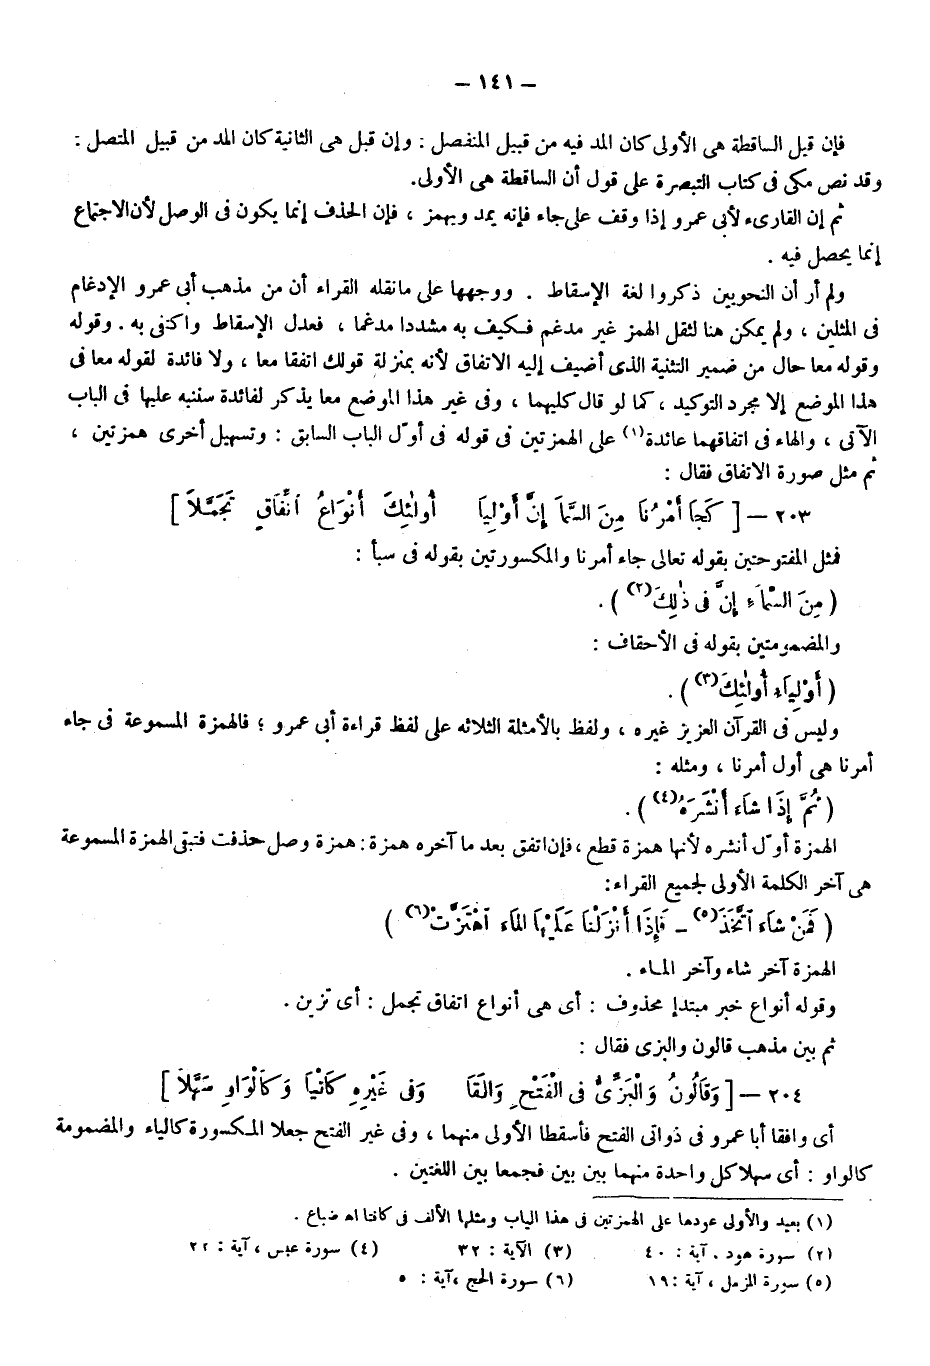 – ١٤١ –
فإن قيل الساقطة هى الأولى كان المد فيه من قبيل المنفصل : وإن قيل هى الثانية كان المد من قبيل المتصل :
وقد نص مكى فى كتاب التبصرة على قول أن الساقطة هى الأولى.
ثم إن القارىء لأبى عمرو إذا وقف على جاء فإنه يمد ويهمز ، فإن الحذف إنما يكون فى الوصل لأن الاجتماع
إنما يحصل فيه .
ولم أر أن النحويين ذكروا لغة الإسقاط . ووجهها على مانقله القراء أن من مذهب أبى عمرو الإدغام
فى المثلين ، ولم يمكن هنا لثقل الهمز غير مدغم فكيف به مشددا مدغما ، فعدل الإسقاط واكتفى به . وقوله
وقوله معا حال من ضمير التثنية الذى أضيف إليه الاتفاق لأنه بمنزلة قولك اتفقا معا ، ولا فائدة لقوله معا فى
هذا الموضع إلا مجرد التوكيد ، كما لو قال كليهما ، وفى غير هذا الموضع معا يذكر لفائدة سننبه عليها فى الباب
الآتى ، والهاء فى اتفاقهما عائدة(١) على الهمزتين فى قوله فى أوّل الباب السابق : وتسهيل أخرى همزتين ،
ثم مثل صورة الاتفاق فقال :
٢٠٣ – [ كَجَا أَمْرُنَا مِنَ السَّمَا إِنَّ أَوْلِيَا أُولٰئِكَ أَنْوَاعُ اتِّفَاقٍ تَجَمَّلَا ]
فمثل المفتوحتين بقوله تعالى جاء أمرنا والمكسورتين بقوله فى سبأ :
( مِنَ السَّمَاءِ إِنَّ فِى ذٰلِكَ(٢) ) .
والمضمومتين بقوله فى الأحقاف :
( أَوْلِيَاءُ أُولٰئِكَ(٣) ) .
وليس فى القرآن العزيز غيره ، ولفظ بالأمثلة الثلاثه على لفظ قراءة أبى عمرو ؛ فالهمزة المسموعة فى جاء
أمرنا هى أول أمرنا ، ومثله :
( ثُمَّ إِذَا شَاءَ أَنْشَرَهُ(٤) ) .
الهمزة أوّل أنشره لأنها همزة قطع ، فإن اتفق بعد ما آخره همزة : همزة وصل حذفت فتبقى الهمزة المسموعة
هى آخر الكلمة الأولى لجميع القراء :
( فَمَنْ شَاءَ اتَّخَذَ(٥) – فَإِذَا أَنْزَلْنَا عَلَيْهَا الْمَاءَ اهْتَزَّتْ(٦) )
الهمزة آخر شاء وآخر الماء .
وقوله أنواع خبر مبتدإ محذوف : أى هى أنواع اتفاق تجمل : أى تزين .
ثم بين مذهب قالون والبزى فقال :
٢٠٤ – [ وَقَالُونُ وَالْبَزِّىُّ فِى الْفَتْحِ وَافَقَا وَفِى غَيْرِهِ كَالْيَا وَكَالْوَاوِ سَهَّلَا ]
أى وافقا أبا عمرو فى ذواتى الفتح فأسقطا الأولى منهما ، وفى غير الفتح جعلا المكسورة كالياء والمضمومة
كالواو : أى سهلا كل واحدة منهما بين بين فجمعا بين اللغتين .
(١) بعيد والأولى عودها على الهمزتين فى هذا الباب ومثلها الألف فى كانتا اه ضباع .
(٢) سورة هود ، آية : ٤٠ (٣) الآية : ٣٢ (٤) سورة عبس ، آية : ٢٢
(٥) سورة المزمل ، آية : ١٩ (٦) سورة الحج ، آية : ٥